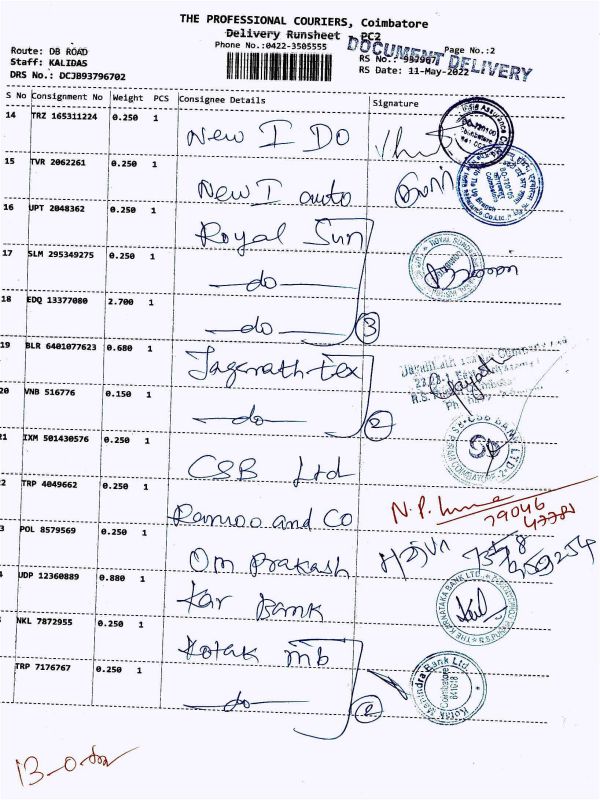 THE PROFESSIONAL COURIERS, Coimbatore
Delivery Runsheet - PC2
Phone No.:0422-3505555
Page No.:2
Route: DB ROAD
Staff: KALIDAS
DRS No.: DCJB93796702
RS No.: 937967
RS Date: 11-May-2022
DOCUMENT DELIVERY
S No Consignment No Weight PCS Consignee Details Signature
14 TRZ 165311224 0.250 1 New I DO
15 TVR 2062261 0.250 1 New I auto
16 UPT 2048362 0.250 1 Royal Sun
17 SLM 295349275 0.250 1 —do—
18 EDQ 13377080 2.700 1 —do— 3
19 BLR 6401077623 0.680 1 Jagnath tex
20 VNB 516776 0.150 1 —do— 2
21 IXM 501430576 0.250 1 CSB Ltd
2 TRP 4049662 0.250 1 Ramoo and Co
3 POL 8579569 0.250 1 Om Prakash
4 UDP 12360889 0.880 1 Kar Bank
NKL 7872955 0.250 1 Kotak mb
TRP 7176767 0.250 1 —do— 2
CSB BANK LTD
79046
THE KARNATAKA BANK LTD.
Kotak Mahindra Bank Ltd.
Coimbatore
641018